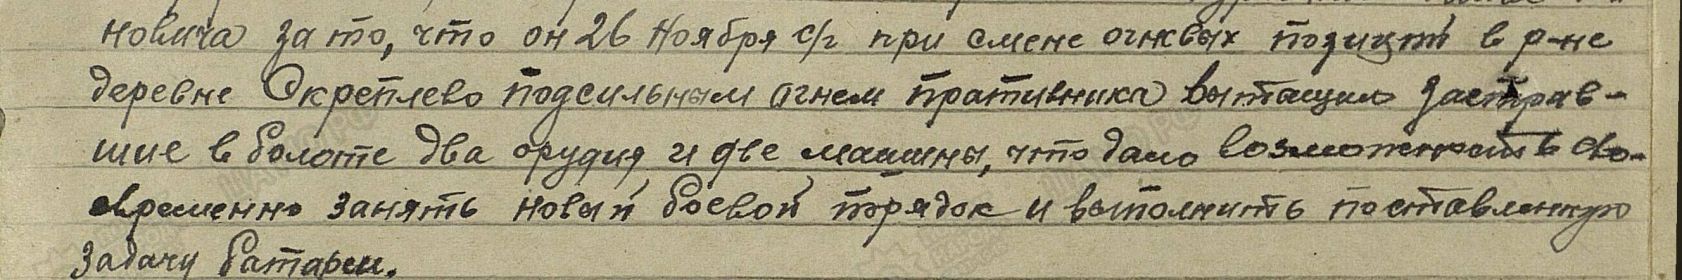 новича за то, что он 26 ноября с/г при смене огневых позиций в р-не
деревне Скреплево подсильным огнем пративника вытащил застряв-
шие в болоте два орудия и две машины, что дало возможность сво-
евременно занять новый боевой порядок и выполнить поставленную
задачу батареи.